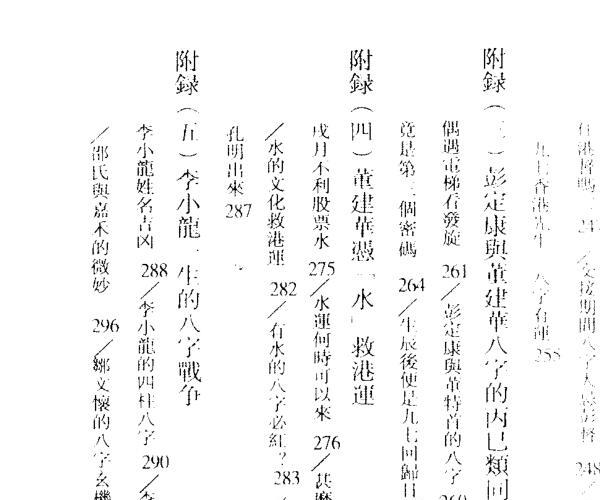 在港督嗎？24 ／交接期間八字大忌彭督 248
九七香港先生 八字有運 255
附録（三）彭定康與董建華八字的丙巳類同
偶遇電梯看發旋 261／彭定康與董特首的八字 260
竟是第二個密碼 264／生辰後便是九七回歸日
附録（四）董建華憑「水」救港運
戌月不利股票水 275／水運何時可以來 276／甚麼
／水的文化救港運 282／有水的八字必紅？283／
孔明出來 287
附録（五）李小龍一生的八字戰爭
李小龍姓名吉凶 288／李小龍的四柱八字 290／李
／鄒氏與嘉禾的微妙 296／鄒文懷的八字玄機